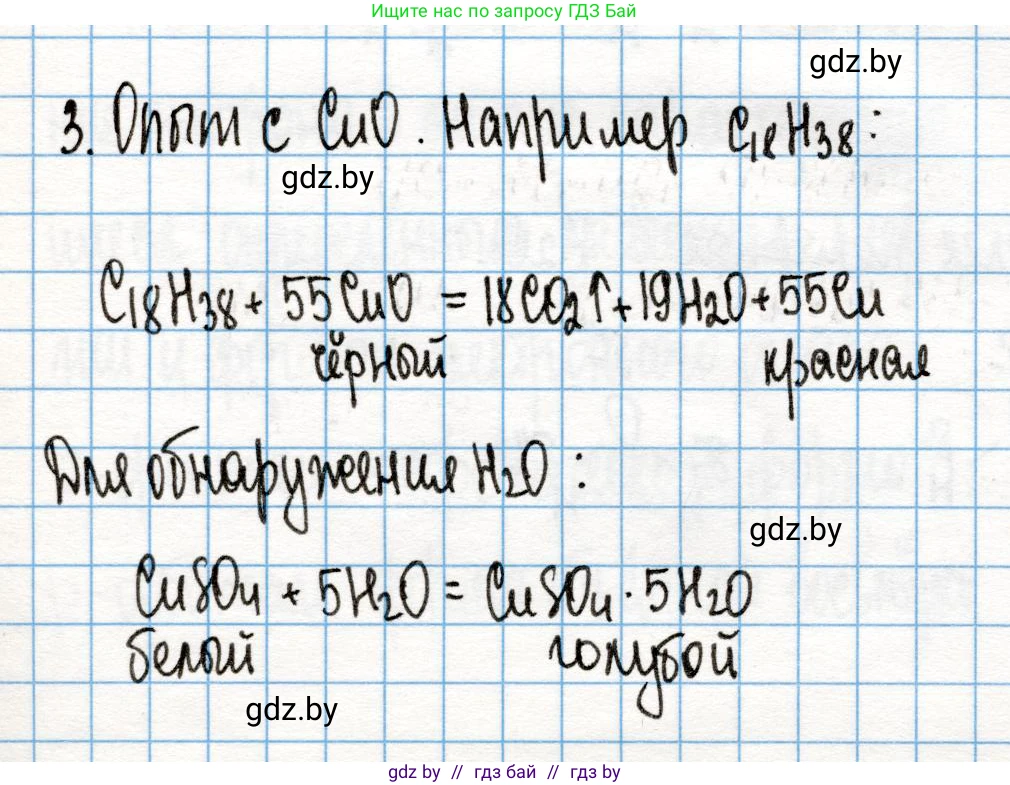 Ищите нас по запросу ГДЗ Бай
gdz.by
3. Опыт с CuO. Например C₁₈H₃₈:
gdz.by
C₁₈H₃₈ + 55CuO = 18CO₂↑ + 19H₂O + 55Cu
чёрный красная
Для обнаружения H₂O:
gdz.by
CuSO₄ + 5H₂O = CuSO₄ · 5H₂O
белый голубой
gdz.by
gdz by // гдз бай // gdz by